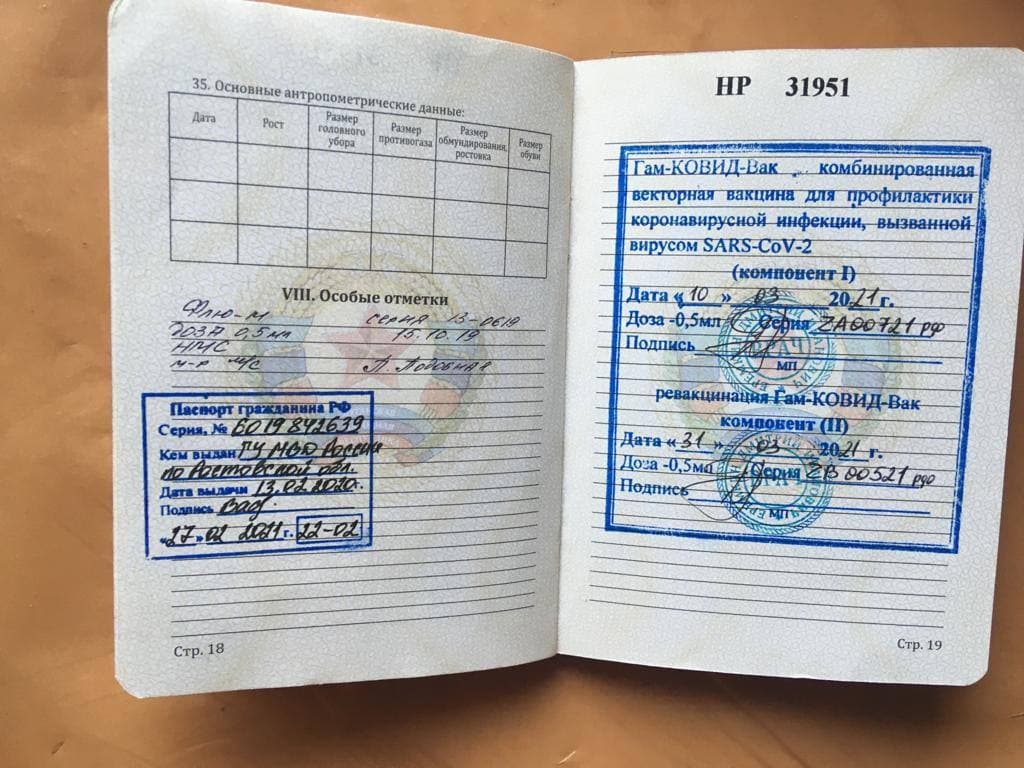 35. Основные антропометрические данные:
Дата Рост Размер головного убора Размер противогаза Размер обмундирования, ростовка Размер обуви
VIII. Особые отметки
Флю-М серия 13-0619
доза 0,5 мл 15.10.19
НМС
м-р м/с
Паспорт гражданина РФ
Серия, № 6019 842639
Кем выдан ГУ МВД России
по Ростовской обл.
Дата выдачи 13.02.2020г.
Подпись
«27» 02 2021 г. 22-02
Стр. 18
НР 31951
Гам-КОВИД-Вак комбинированная
векторная вакцина для профилактики
коронавирусной инфекции, вызванной
вирусом SARS-CoV-2
(компонент I)
Дата «10» 03 2021 г.
Доза -0,5мл Серия ZA00721 рф
Подпись
ВРАЧ
МП
ревакцинация Гам-КОВИД-Вак
компонент (II)
Дата «31» 03 2021 г.
Доза -0,5мл Серия ZB00521 рф
Подпись
МП
Стр. 19